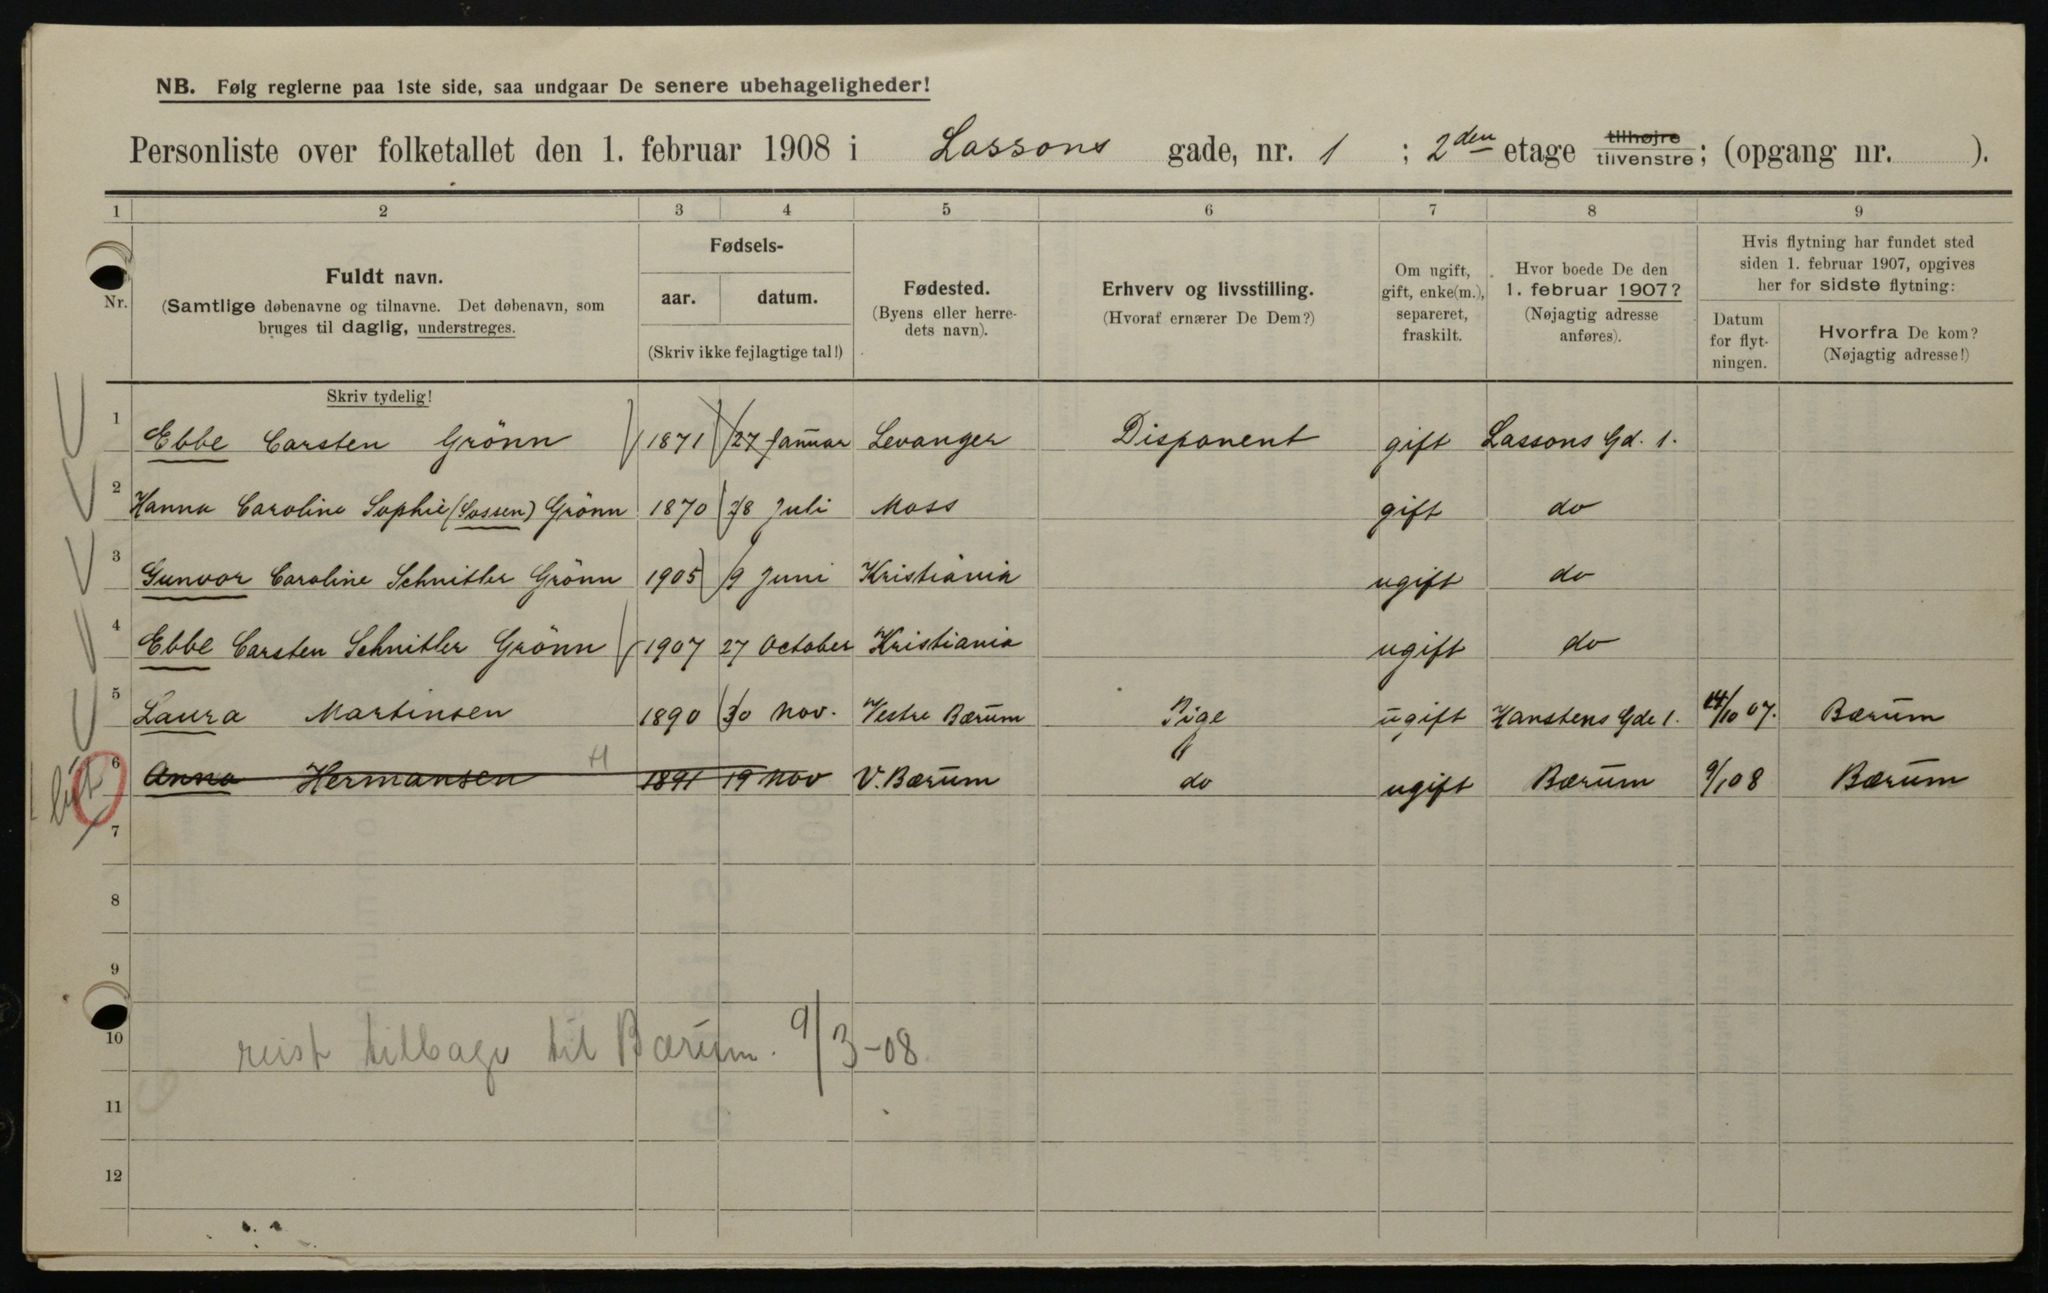 NB. Følg reglerne paa 1ste side, saa undgaar De senere ubehageligheder!
Personliste over folketallet den 1. februar 1908 i Lassons gade, nr. 1 ; 2den etage tilhøjre tilvenstre; (opgang nr. ).
1 2 3 4 5 6 7 8 9
Nr.
Fuldt navn.
(Samtlige døbenavne og tilnavne. Det døbenavn, som
bruges til daglig, understreges.
Fødsels-
aar. datum.
(Skriv ikke fejlagtige tal!)
Fødested.
(Byens eller herre-
dets navn).
Erhverv og livsstilling.
(Hvoraf ernærer De Dem?)
Om ugift,
gift, enke(m.),
separeret,
fraskilt.
Hvor boede De den
1. februar 1907?
(Nøjagtig adresse
anføres).
Hvis flytning har fundet sted
siden 1. februar 1907, opgives
her for sidste flytning:
Datum
for flyt-
ningen.
Hvorfra De kom?
(Nøjagtig adresse!)
Skriv tydelig!
1 Ebbe Carsten Grönn 1871 27 Januar Levanger Disponent gift Lassons Gd. 1.
2 Hanna Caroline Sophie (Sossen) Grönn 1870 28 Juli Moss gift do
3 Gunvor Caroline Schnitler Grönn 1905 9 Juni Kristiania ugift do
4 Ebbe Carsten Schnitler Grönn 1907 27 October Kristiania ugift do
5 Laura Martinsen 1890 30 Nov. Vestre Bærum Pige ugift Hanstens Gde 1. 14/10 07. Bærum
6 Anna Hermansen 1891 19 Nov V. Bærum do ugift Bærum 9/1 08 Bærum
7
8
9
10 reist tilbage til Bærum. 9/3-08
11
12